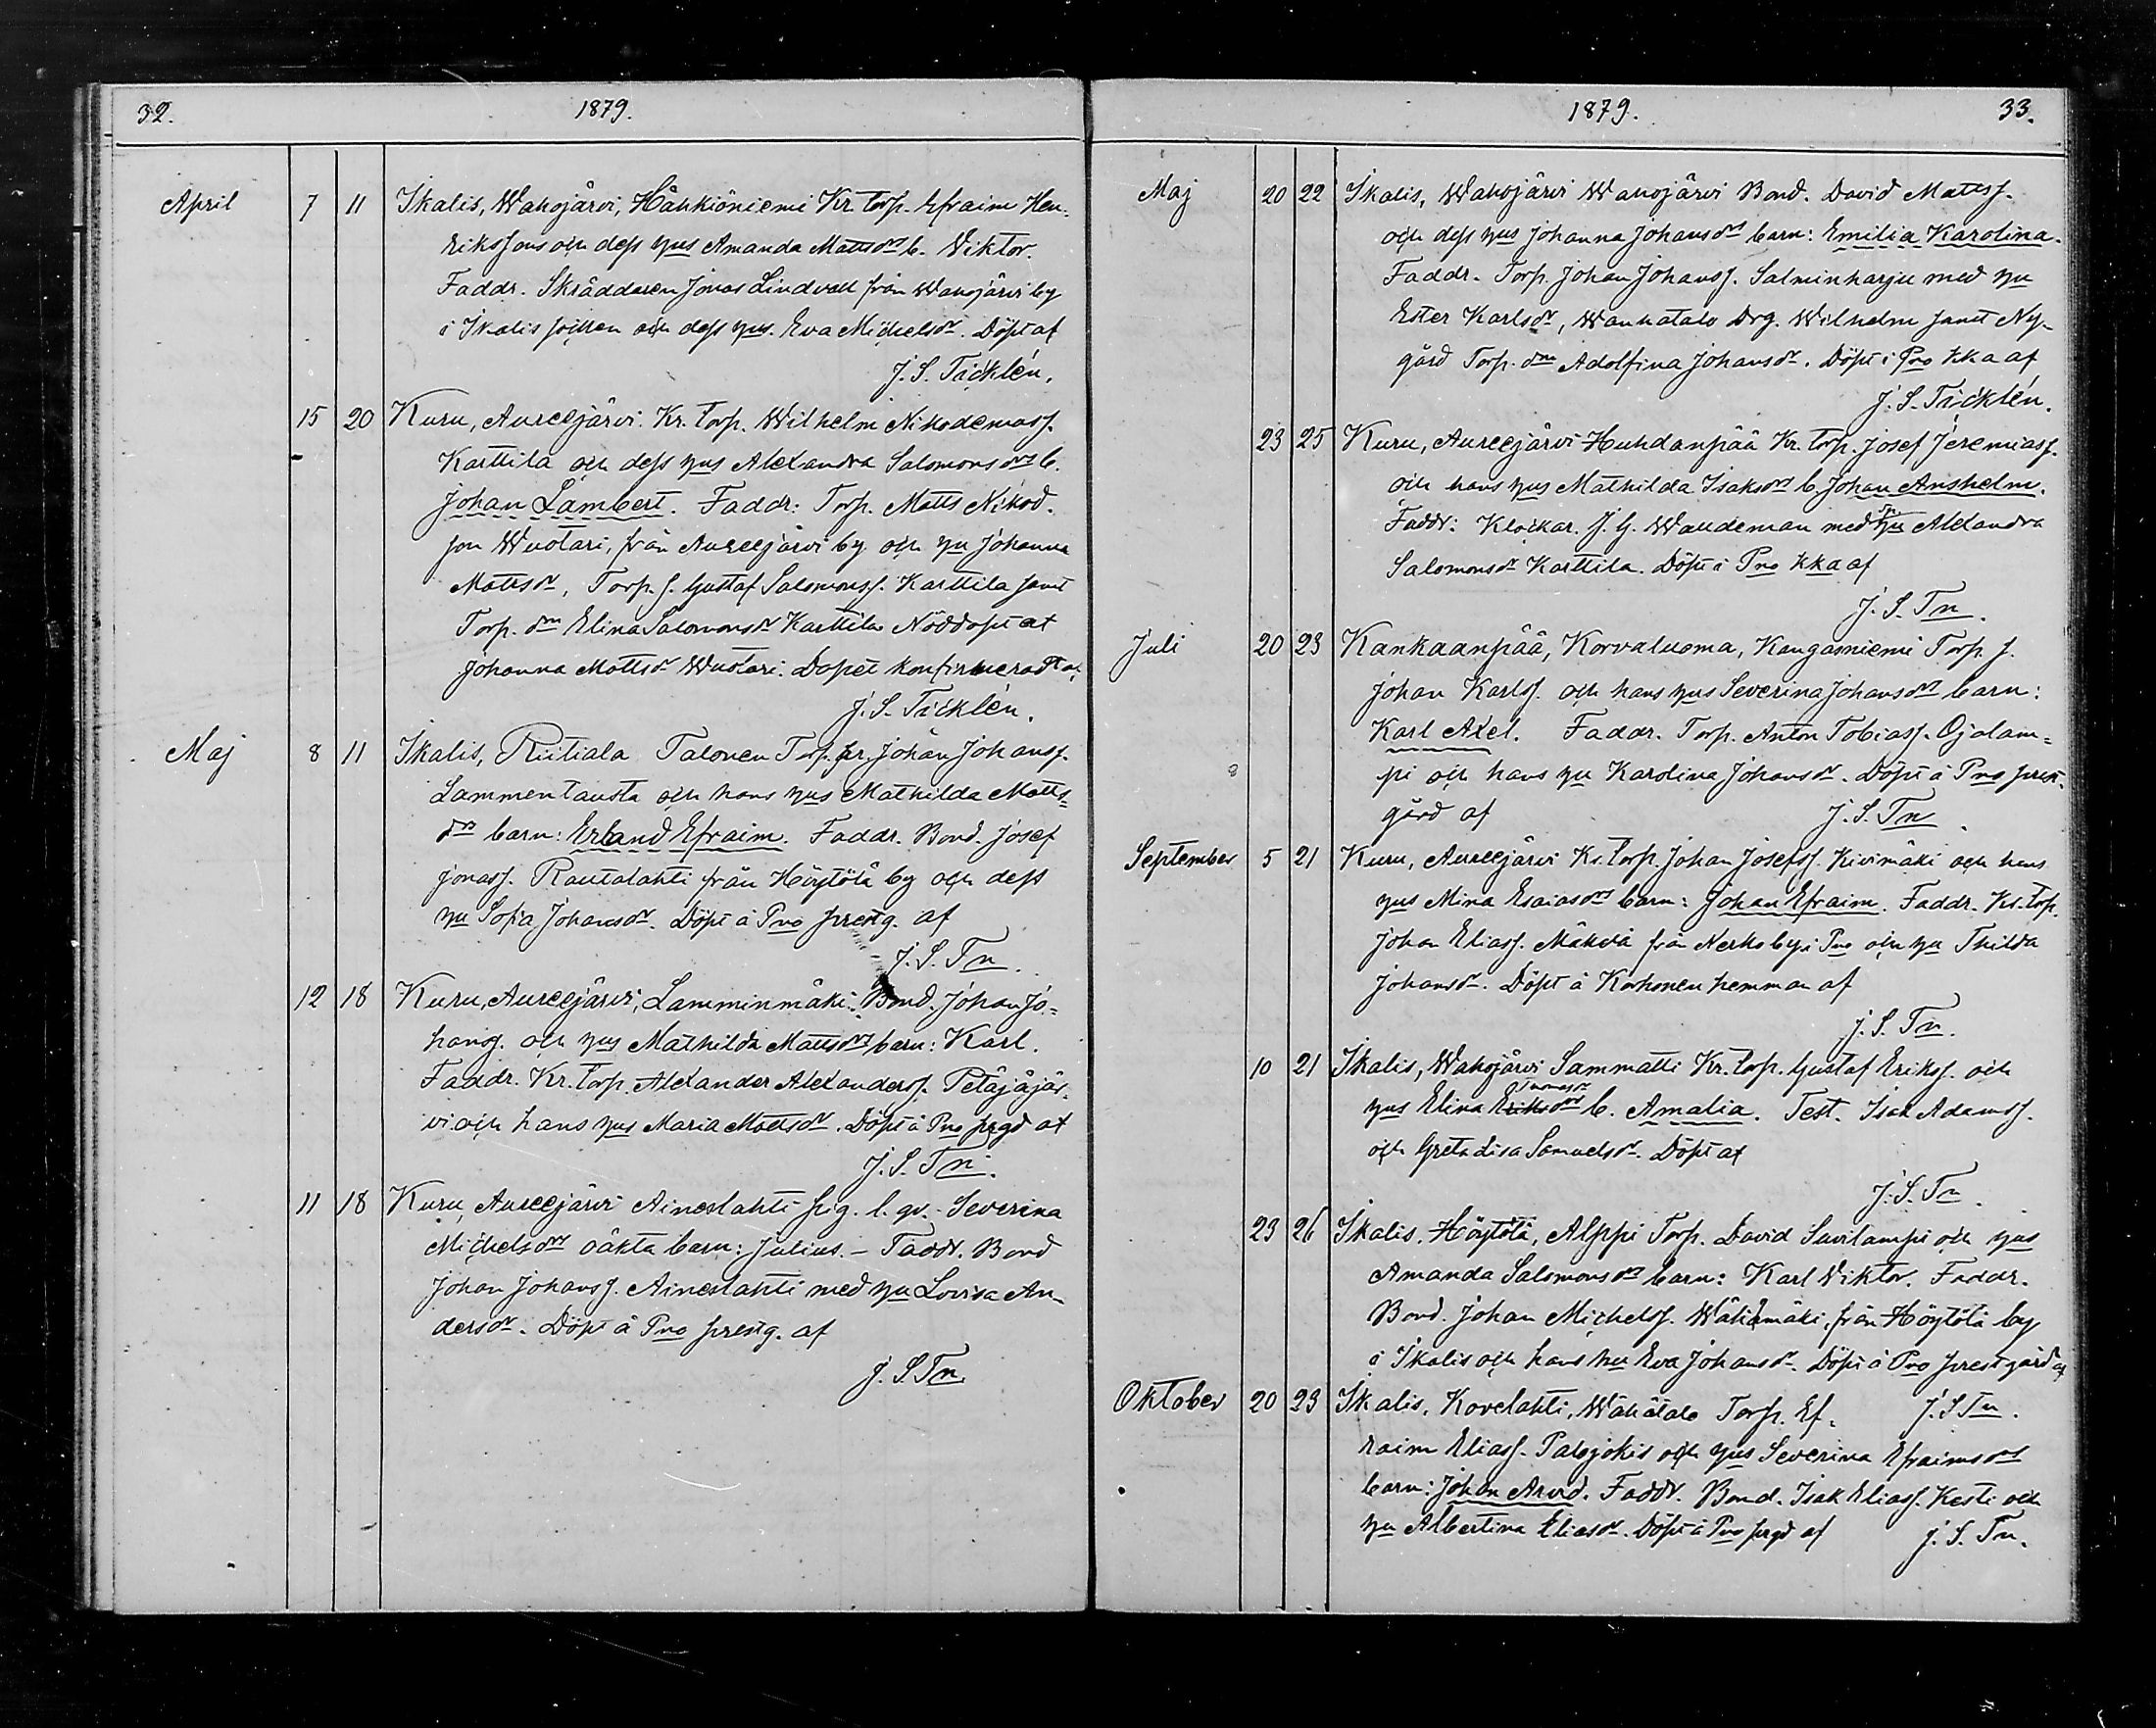 32.
1879.
April 7 11 Ikalis, Wahojärvi, Hähkiöniemi Kr. torp. Efraim Hen-
rikssons och dess hus Amanda Mattsdrs b. Viktor.
Faddr. Skräddaren Jonas Lindvall från Wahojärvi by
i Ikalis socken och dess hus. Eva Michelsdr. Döpt af
J. S. Täcklén.
15 20 Kuru, Aureejärvi Kr. torp. Wilhelm Nikodemuss.
Karttila och dess hus Alexandra Salomonsdrs b.
Johan Lambert. Faddr: Torp. Matts Nikod.
son Wuotari, från Aureejärvi by och hu Johanna
Mattsdr, Torp. s. Gustaf Salomonss. Karttila samt
Torp. dr Elina Salomonsdr Karttila Nöddöpt af
Johanna Mattsdr Wuotari. Dopet konfirmeradt af
J. S. Täcklén.
Maj 8 11 Ikalis, Riitiala Talonen Torp. Johan Johanss.
Lammentausta och hans hus Mathilda Matts-
drs barn: Erland Efraim. Faddr. Bond. Josef
Jonass. Rautalahti från Höytölä by och dess
hu Sofia Johansdr. Döpt å Pno prestg. af
J. S. Tn.
12 18 Kuru, Aureejärvi, Lamminmäki Bond. Johan Jo-
hanss. och hus Mathilda Mattsdrs barn: Karl.
Faddr. Kr. torp. Alexander Alexanderss. Petäjäjär-
vi och hans hus Maria Mattsdr. Döpt å Pno prgd af
J. S. Tn.
11 18 Kuru, Aureejärvi Aineslahti l. qv. Severina
Michelsdrs oäkta barn: Julius. - Faddr. Bond
Johan Johanss. Aineslahti med hu Lovisa An-
dersdr. Döpt å Pno prestg. af
J. S. Tn.
1879.
33.
Maj 20 22 Ikalis, Wahojärvi Wahojärvi Bond. David Mattss.
och dess hus Johanna Johansdrs barn: Emilia Karolina.
Faddr. Torp. Johan Johanss. Salminharju med hu
Ester Karlsdr, Wanhatalo Drg. Wilhelm samt Ny-
gård Torp. dr Adolfina Johansdr. Döpt i Pno kka af
J. S. Täcklén.
23 25 Kuru, Aureejärvi Huhdanpää Kr. torp. Josef Jeremiass.
och hans hus Mathilda Isaksdrs b. Johan Anshelm.
Faddr: Klockar. J. G. Waldeman med hu Alexandra
Salomonsdr Karttila. Döpt i Pno kka af
J. S. Tn.
Juli 20 23 Kankaanpää, Korvaluoma, Kangasniemi Torp. s.
Johan Karlss. och hans hus Severina Johansdrs barn:
Karl Axel. Faddr. Torp. Anton Tobiass. Ojalam-
pi och hans hu Karolina Johansdr. Döpt å Pno prest-
gård af J. S. Tn.
September 5 21 Kuru, Aureejärvi Kr. torp. Johan Josefss. Kivimäki och hans
hus Mina Esaiasdrs barn: Johan Efraim. Faddr. Kr. torp.
Johan Eliass. Mäkelä från Nerko by i Pno och hu Thilda
Johansdr. Döpt å Korhonen hemman af
J. S. Tn.
10 21 Ikalis, Wahojärvi Sammatti Kr. torp. Gustaf Erikss. och
hus Elina Eriksdrs b. Amalia. Test. Isak Adamss.
och Greta Lisa Samuelsdr. Döpt af
J. S. Tn.
23 26 Ikalis, Höytölä, Alppi Torp. David Savilampi och hus
Amanda Salomonsdrs barn: Karl Viktor. Faddr.
Bond. Johan Michelss. Wälimäki, från Höytölä by
i Ikalis och hans hu Eva Johansdr. Döpt å Pno prestgård af
J. S. Tn.
Oktober 20 23 Ikalis, Kovelahti, Wähätalo Torp. Ef-
raim Eliass. Palojokis och hus Severina Efraimsdrs
barn: Johan Arvid. Faddr. Bond. Isak Eliass. Kesti och
hu Albertina Eliasdr. Döpt å Pno prgd af J. S. Tn.